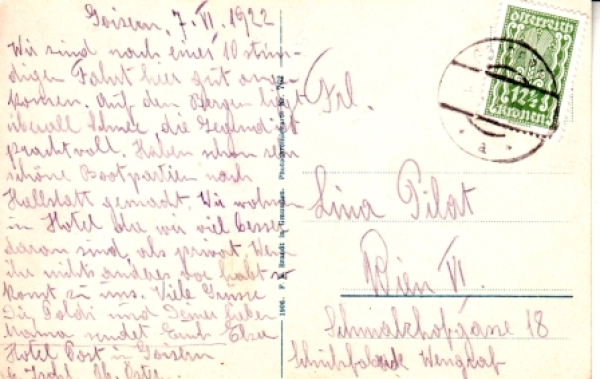 Goisern, 7. VI. 1922
Wir sind nach einer 10 stün-
digen Fahrt hier gut ange-
kommen. Auf den Bergen liegt
überall Schnee, die Gegend ist
prachtvoll. Haben schon sehr
schöne Bootpartien nach
Hallstatt gemacht. Wir wohnen
in Hotel wir viel besser
daran sind, als privat. Wenn
ihr nichts anderes vor habt so
kommt zu uns. Viele Grüsse
Dir, Poldi und Deiner lieben
Mama sendet Euch Elsa
Hotel Post in Goisern
b. Ischl, Ob. Österr.
1906. F. E. Brandt in Gmunden.
österreich
12½
kronen
a
Frl.
Lina Pilat
Wien VI.
Schmalzhofgasse 18
Wengraf